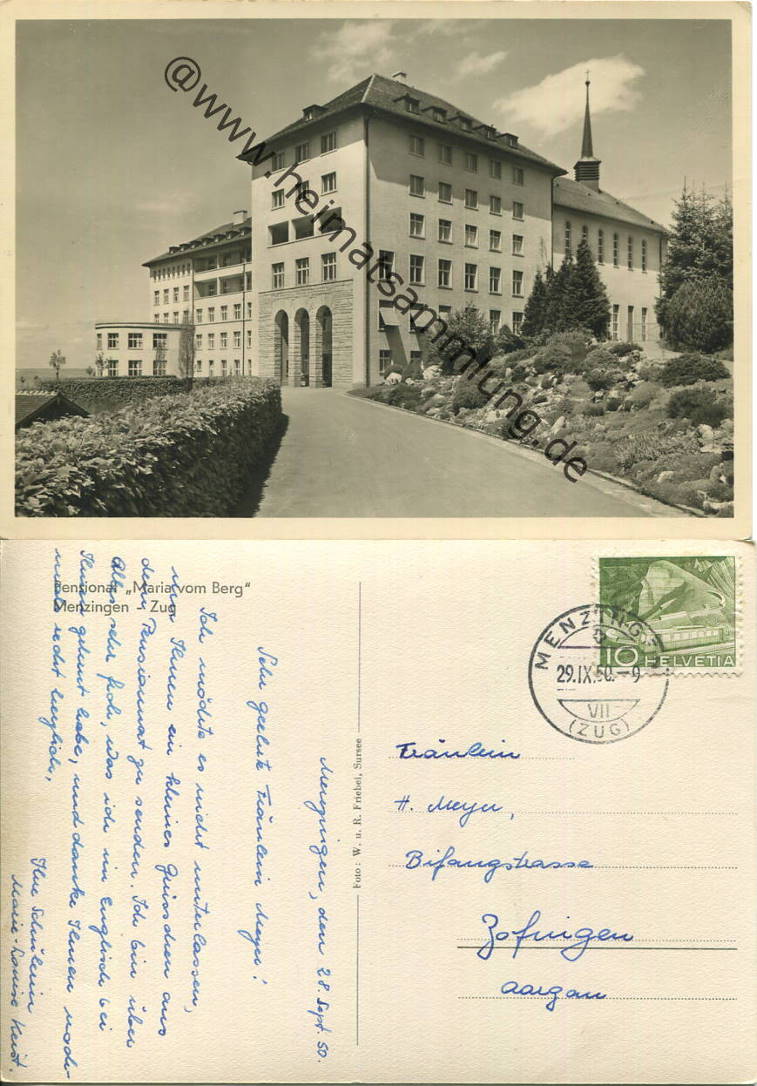 @www.heimatsammlung.de
Pensionat „Maria vom Berg"
Menzingen - Zug
Menzingen, den 28. Sept. 50.
Sehr geehrte Fräulein Meyer!
Ich möchte es nicht unterlassen,
um Ihnen ein kleines Grüsschen aus
dem Pensionat zu senden. Ich bin über
alles sehr froh, was ich im Englisch bei
Ihnen gelernt habe, und danke Ihnen noch-
mals recht herzlich,
Ihre Schülerin
Marie-Louise
Foto: W. u. R. Friebel, Sursee
MENZINGEN
29.IX.50.-9
VII
(ZUG)
10 HELVETIA
Fräulein
H. Meyer,
Bifangstrasse
Zofingen
Aargau